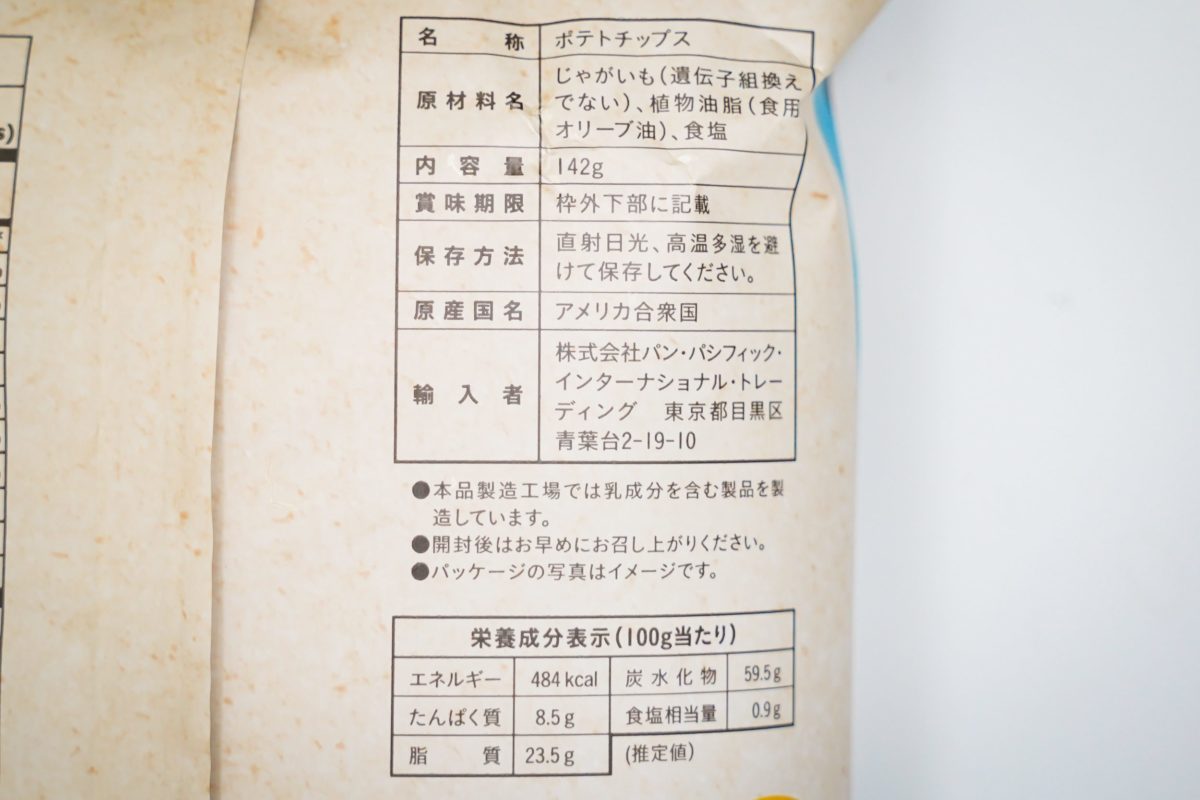 名称 ポテトチップス
原材料名 じゃがいも(遺伝子組換え
でない)、植物油脂(食用
オリーブ油)、食塩
内容量 142g
賞味期限 枠外下部に記載
保存方法 直射日光、高温多湿を避
けて保存してください。
原産国名 アメリカ合衆国
輸入者 株式会社パン・パシフィック・
インターナショナル・トレー
ディング 東京都目黒区
青葉台2-19-10
●本品製造工場では乳成分を含む製品を製
造しています。
●開封後はお早めにお召し上がりください。
●パッケージの写真はイメージです。
栄養成分表示(100g当たり)
エネルギー 484kcal 炭水化物 59.5g
たんぱく質 8.5g 食塩相当量 0.9g
脂質 23.5g (推定値)